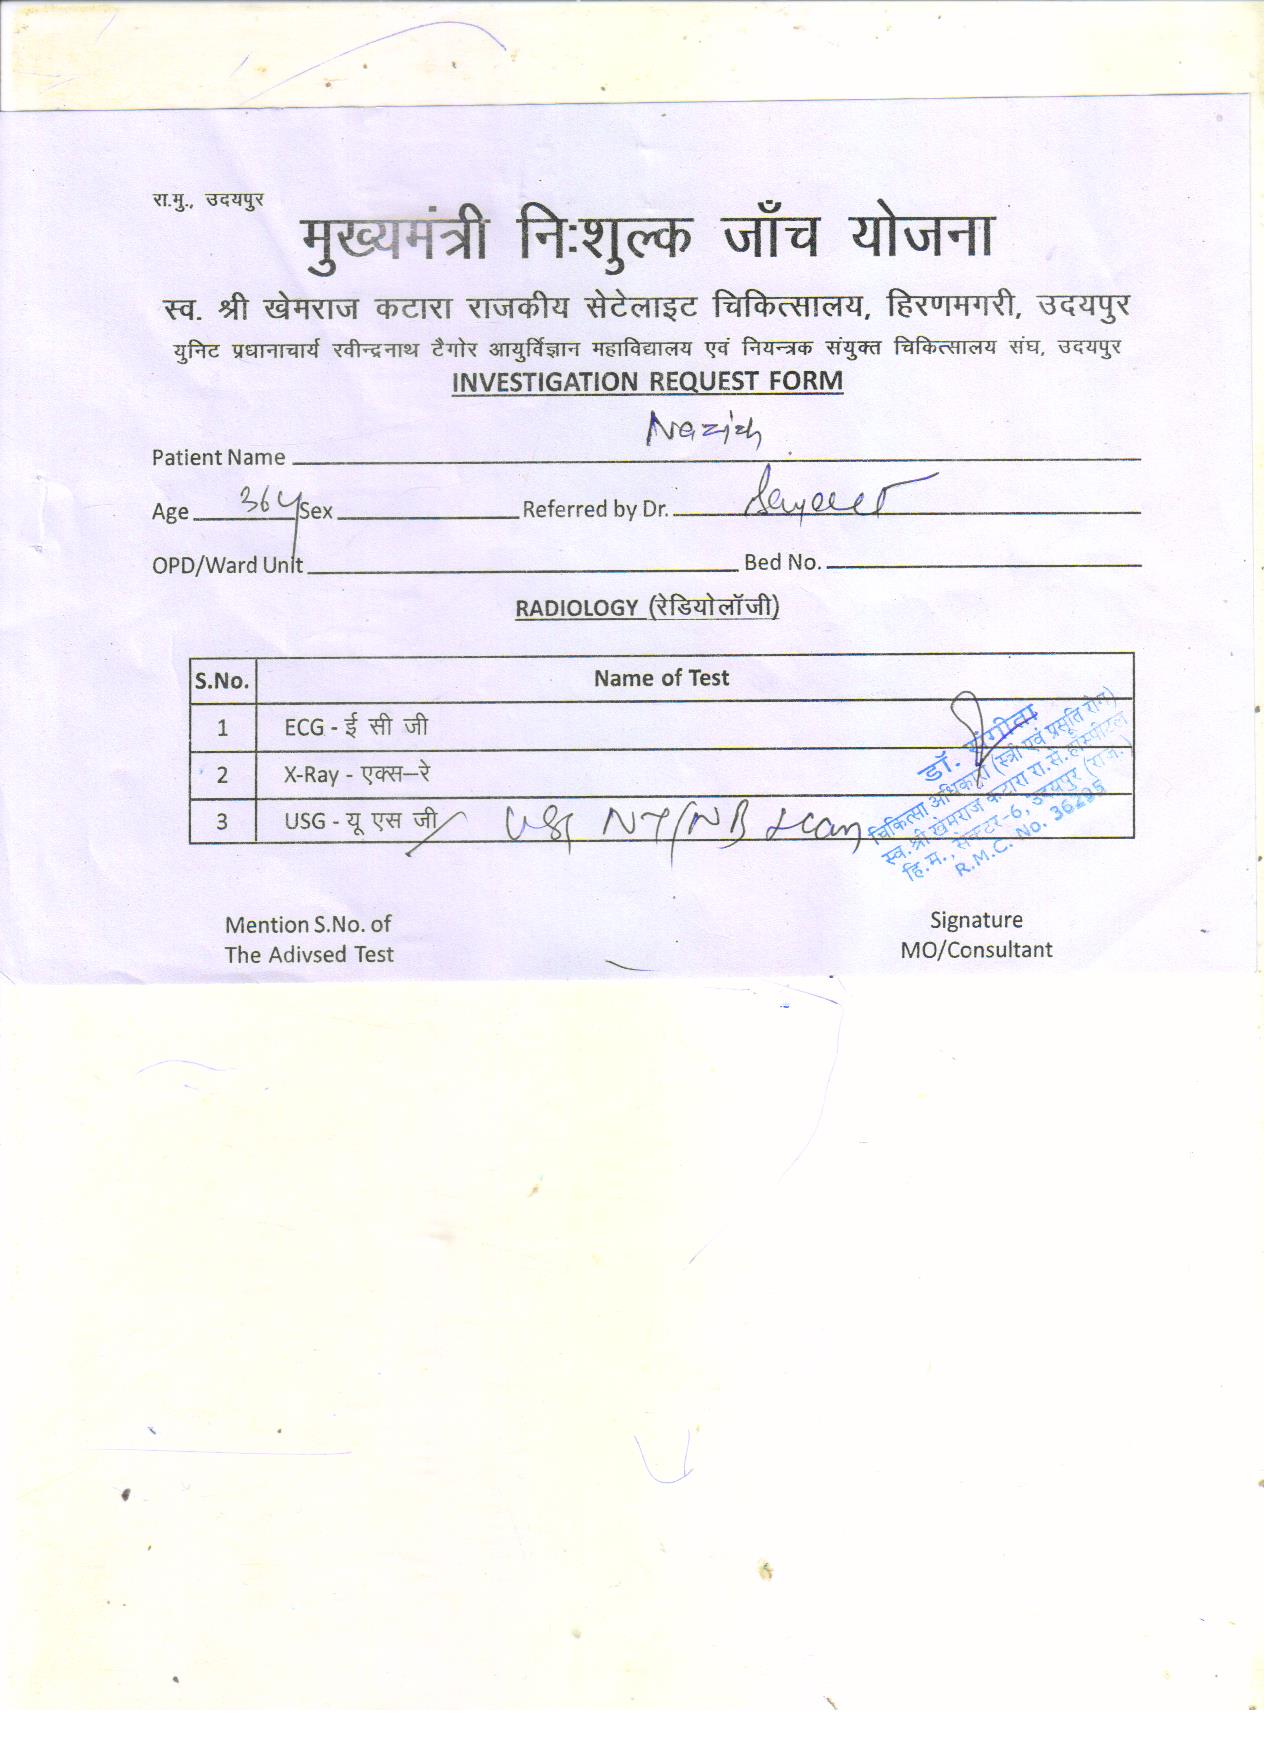 रा.मु., उदयपुर
मुख्यमंत्री निःशुल्क जाँच योजना
स्व. श्री खेमराज कटारा राजकीय सेटेलाइट चिकित्सालय, हिरणमगरी, उदयपुर
युनिट प्रधानाचार्य रवीन्द्रनाथ टैगोर आयुर्विज्ञान महाविद्यालय एवं नियन्त्रक संयुक्त चिकित्सालय संघ, उदयपुर
INVESTIGATION REQUEST FORM
Patient Name Nazish
Age 36y Sex Referred by Dr.
OPD/Ward Unit Bed No.
RADIOLOGY (रेडियोलॉजी)
S.No. Name of Test
1 ECG - ई सी जी
2 X-Ray - एक्स–रे
3 USG - यू एस जी USG NT/NB scan
डॉ. संगीता
चिकित्सा अधिकारी (स्त्री एवं प्रसूति रोग)
स्व.श्री खेमराज कटारा रा.से.हॉस्पीटल
हि.म., सेक्टर-6, उदयपुर (राज.)
R.M.C. No. 36285
Mention S.No. of Signature
The Adivsed Test MO/Consultant